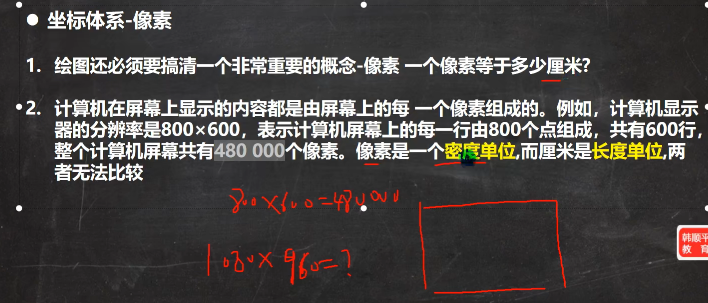 ● 坐标体系-像素
1. 绘图还必须要搞清一个非常重要的概念-像素 一个像素等于多少厘米?
2. 计算机在屏幕上显示的内容都是由屏幕上的每 一个像素组成的。例如，计算机显示
器的分辨率是800×600，表示计算机屏幕上的每一行由800个点组成，共有600行，
整个计算机屏幕共有480 000个像素。像素是一个密度单位,而厘米是长度单位,两
者无法比较
800×600=480000
1080×960=?
韩顺平
教育